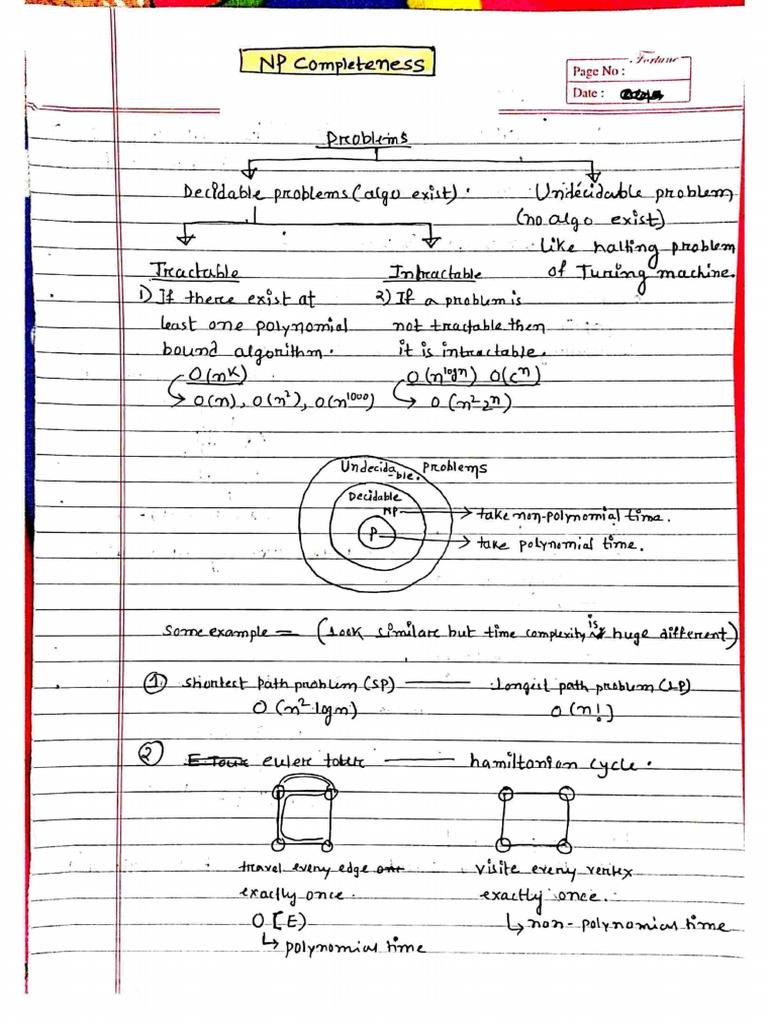 NP Completeness
Fortune
Page No :
Date :
Problems
Decidable problems (algo exist).
Undecidable problem
(no algo exist)
Like halting problem
of Turing machine.
Tractable
1) If there exist at
least one polynomial
bound algorithm.
O(n^k)
O(n), O(n²), O(n^1000)
Intractable
2) If a problem is
not tractable then
it is intractable.
O(n^logn) O(c^n)
O(n²-2^n)
Undecidable. Problems
Decidable
NP
take non-polynomial time.
P
take polynomial time.
Some example = (look similar but time complexity is huge different)
① Shortest path problem (SP) — Longest path problem (LP)
O(n²·logn) O(n!]
② euler tour — hamiltonian cycle.
travel every edge
exactly once.
O[E)
polynomial time
visite every vertex
exactly once.
non-polynomial time